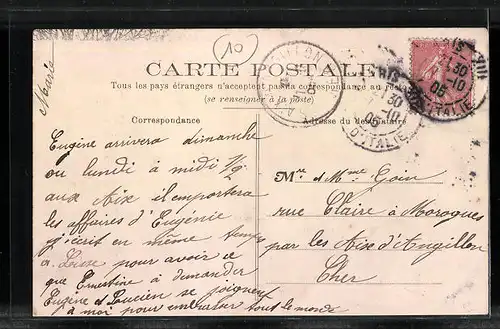 10
CARTE POSTALE
Tous les pays étrangers n'acceptent pas la correspondance au recto
(se renseigner à la poste)
Correspondance
Adresse du destinataire
Marie
Eugène arrivera dimanche
ou lundi à midi 1/2
aux Aix il emportera
les affaires d'Eugénie
j'écrit en même temps
à pour avoir ce
que Ernestine à demander
Eugène et Lucien se joignent
à moi pour embrasser tout le monde
Mr et Mme Goin
rue Claire à Morogues
par les Aix d'Angillon
Cher
21 30
10
05
D'ITALIE
PARIS
XIII
21 30
10
05
D'ITALIE